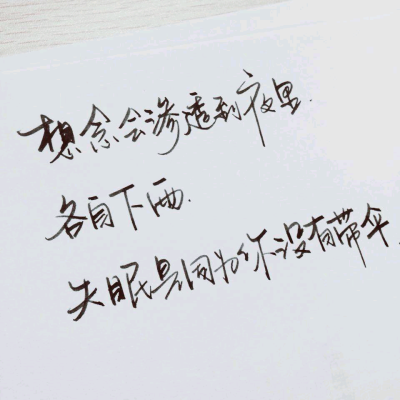 想念会渗透到夜里.
各自下雨.
失眠是因为你没有带伞.